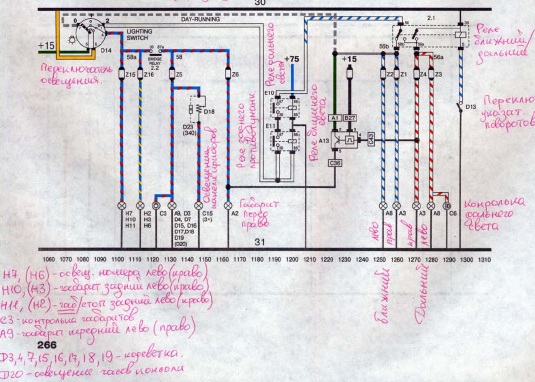 30
DAY-RUNNING
LIGHTING
SWITCH
D14
+15
58
58a
BRIDGE
RELAY
2.2
Z15
Z16
Z5
Z6
D18
D23
(340)
+75
E10
E11
+15
A1
B27
A13
C36
C43
2.1
56b
56a
Z2
Z1
Z4
Z3
D13
Переключатель
освещения.
Реле дальнего
света
Реле ближнего
света
Реле
ближний/
дальний
Переключ
указат.
поворотов
Освещение
панели приборов
Габарит
перед
право
лево
прав
прав
лево
контролька
дальнего
света
H7
H10
H11
H2
H3
H6
C3
A9, D3
D4, D7
D15, D16
D17, D18
D19
(D20)
C15
(3+)
A2
A8
A3
A3
A8
C6
31
1060 1070 1080 1090 1100 1110 1120 1130 1140 1150 1160 1170 1180 1190 1200 1210 1220 1230 1240 1250 1260 1270 1280 1290 1300 1310
Ближний
Дальний
H7, (H6) - освещ. номера лево (право)
H10, (H3) - габарит задний лево (право)
H11, (H2) - габ/стоп задний лево (право)
C3 - контролька габаритов
A9 - габарит передний лево (право)
266
D3,4,7,15,16,17,18,19 - подсветка.
D20 - освещение часов консоли